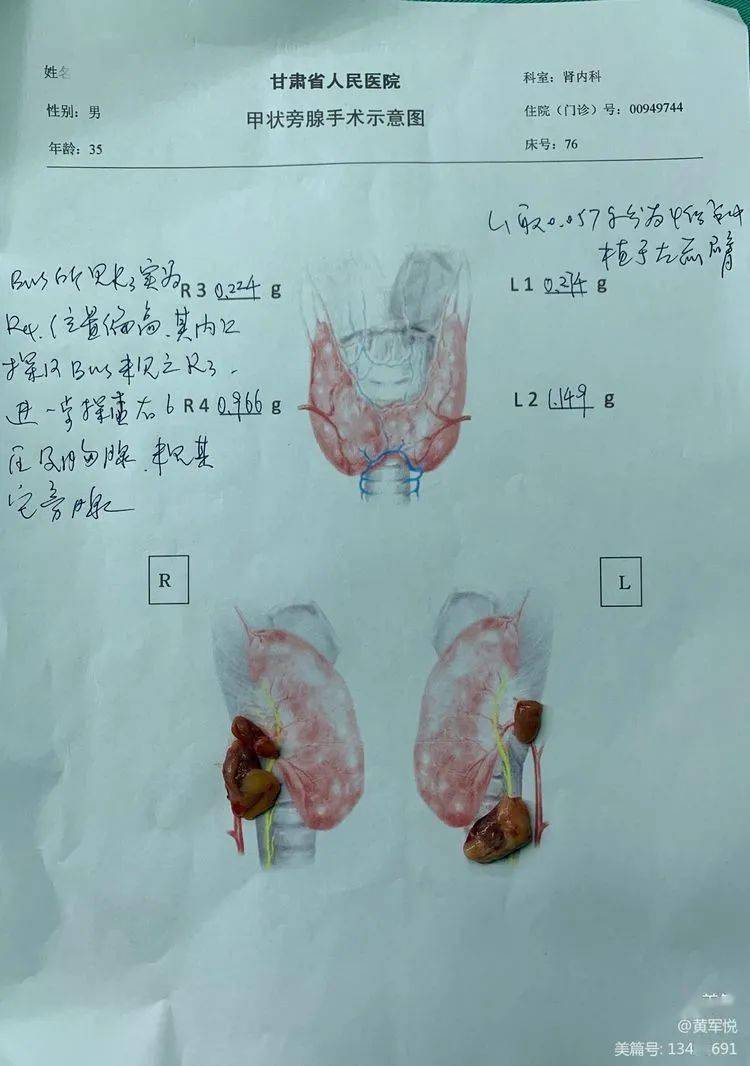 姓名
甘肃省人民医院
科室：肾内科
性别：男
甲状旁腺手术示意图
住院（门诊）号：00949744
年龄：35
床号：76
L1取0.057g分为4份
植于左前臂
Bus所见R3实为
R4.位置偏高.其内
探及Bus未见之R3.
进一步探查右6
区及胸腺.未见其
它旁腺
R3 0.224 g
L1 0.274 g
R4 0.966 g
L2 1.149 g
R
L
@黄军悦
美篇号: 134 691